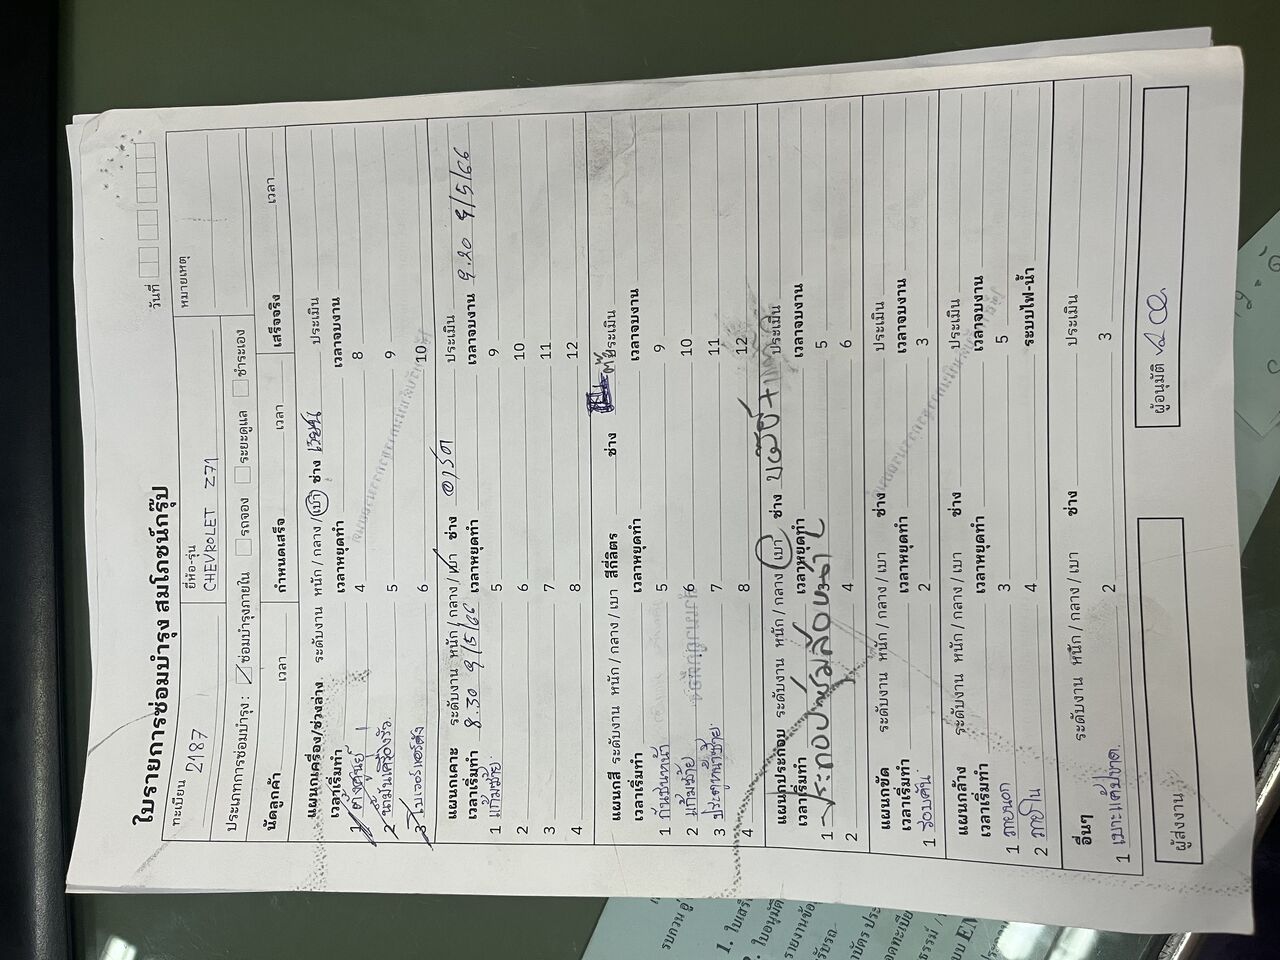 ใบรายการซ่อมบำรุง สมโภชน์กรุ๊ป
วันที่
ทะเบียน 2187 ยี่ห้อ-รุ่น CHEVROLET Z71 หมายเหตุ
ประเภทการซ่อมบำรุง : ซ่อมบำรุงภายใน รถจอง ระยะดูแล ชำระเอง
นัดลูกค้า เวลา กำหนดเสร็จ เวลา เสร็จจริง เวลา
แผนกเครื่อง/ช่วงล่าง ระดับงาน หนัก / กลาง / เบา ช่าง ประเมิน
เวลาเริ่มทำ เวลาหยุดทำ เวลาจบงาน
1 ตั้งศูนย์ 4 8
2 5 9
3 6 10
แผนกเคาะ ระดับงาน หนัก / กลาง / เบา ช่าง ประเมิน
เวลาเริ่มทำ 8.30 9/5/66 เวลาหยุดทำ เวลาจบงาน 9.20 9/5/66
1 แก้มซ้าย 5 9
2 6 10
3 7 11
4 8 12
แผนกสี ระดับงาน หนัก / กลาง / เบา สีกี่ลิตร ช่าง ประเมิน
เวลาเริ่มทำ เวลาหยุดทำ เวลาจบงาน
1 กันชนหน้า 5 9
2 แก้มซ้าย 6 10
3 ประตูหน้าซ้าย 7 11
4 8 12
แผนกประกอบ ระดับงาน หนัก / กลาง / เบา ช่าง ประเมิน
เวลาเริ่มทำ เวลาหยุดทำ เวลาจบงาน
1 3 5
2 4 6
แผนกขัด ระดับงาน หนัก / กลาง / เบา ช่าง ประเมิน
เวลาเริ่มทำ เวลาหยุดทำ เวลาจบงาน
1 รอบคัน 2 3
แผนกล้าง ระดับงาน หนัก / กลาง / เบา ช่าง ประเมิน
เวลาเริ่มทำ เวลาหยุดทำ เวลาจบงาน
1 ภายนอก 3 5
2 ภายใน 4 ระบบไฟ-น้ำ
อื่นๆ ระดับงาน หนัก / กลาง / เบา ช่าง ประเมิน
1 เบาะแค๊ปขาด 2 3
ผู้สั่งงาน ผู้อนุมัติ